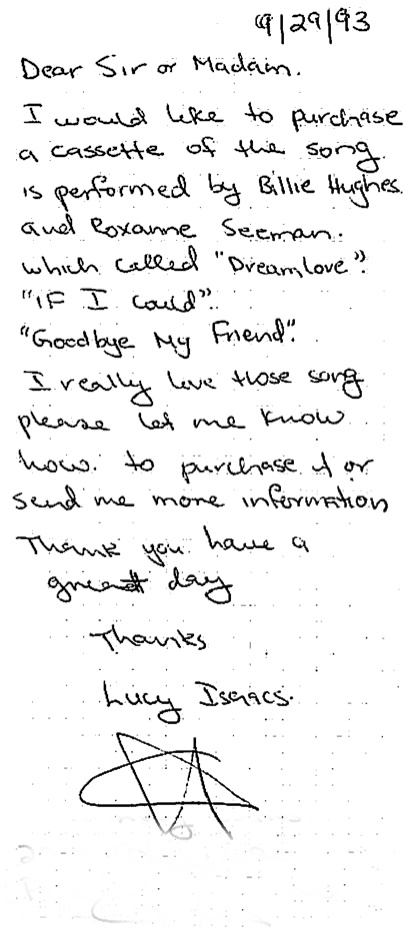 9/29/93
Dear Sir or Madam.
I would like to purchase
a cassette of the song
is performed by Billie Hughes.
and Roxanne Seeman.
which called "Dreamlove".
"IF I Could".
"Goodbye My Friend".
I really love those song
please let me know
how. to purchase it or
send me more information
Thank you have a
great day
Thanks
Lucy Isaacs.